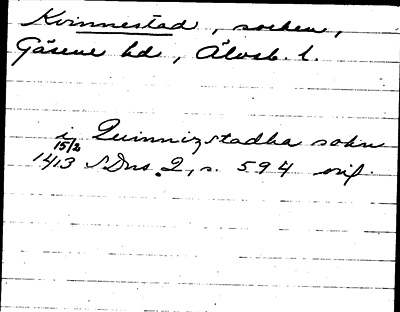 Kvinnestad, socken,
Gäsene hd, Älvsb. l.
i Quinnizstadha sokn
15/2
1413 SDns. 2, s. 594 orig.